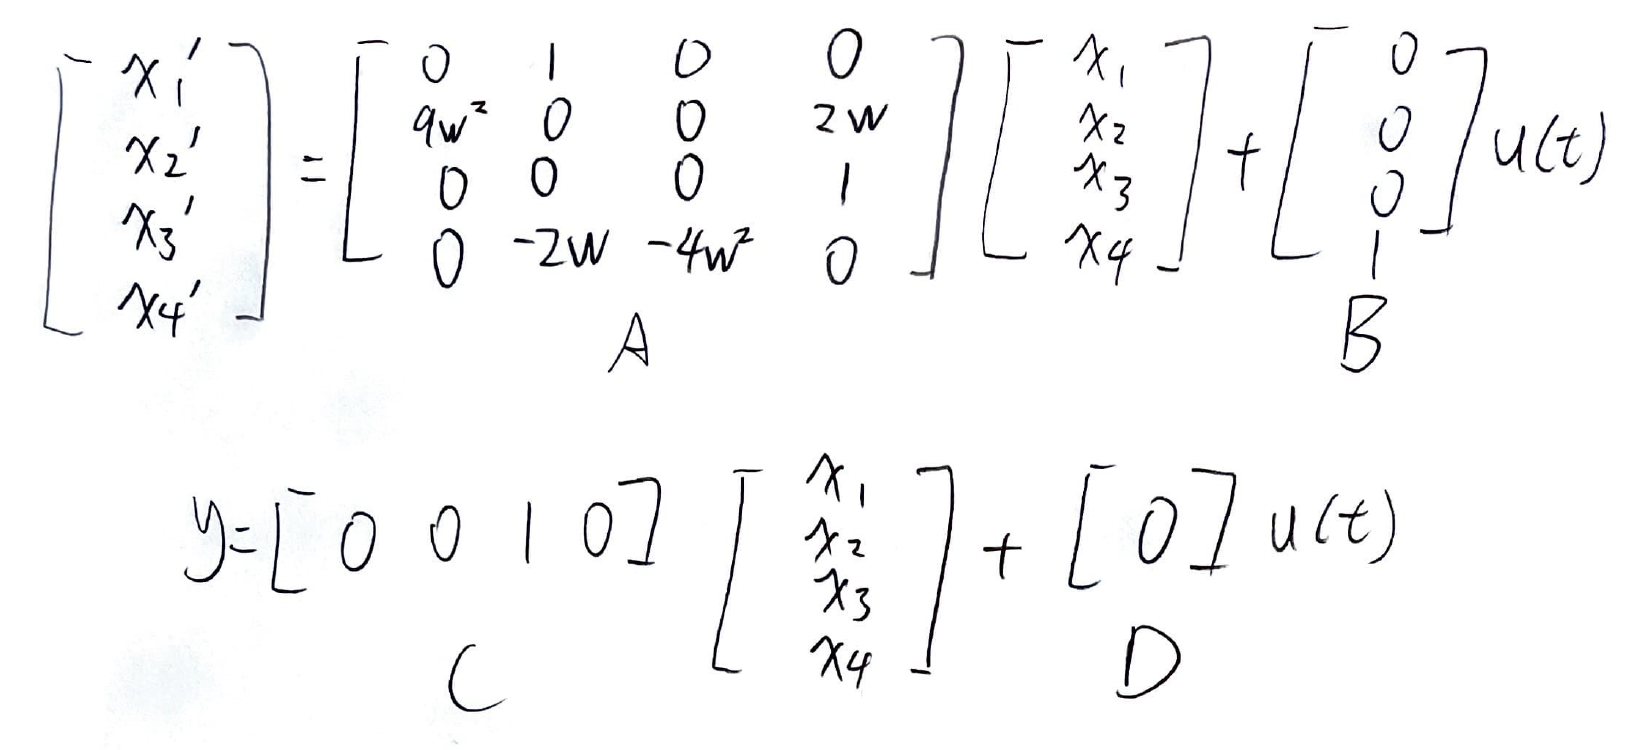 [x₁' x₂' x₃' x₄'] = [0 1 0 0; 9w² 0 0 2w; 0 0 0 1; 0 -2w -4w² 0] [x₁ x₂ x₃ x₄] + [0 0 0 1] u(t)
A B
y = [0 0 1 0] [x₁ x₂ x₃ x₄] + [0] u(t)
C D